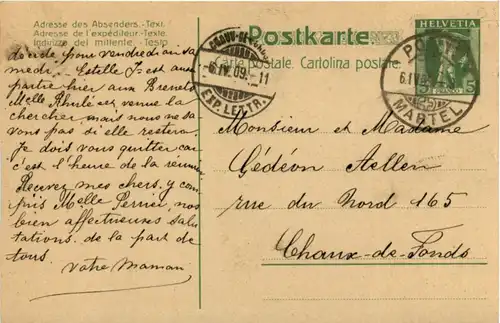 Adresse des Absenders. - Text.
Adresse de l'expéditeur. - Texte.
Indirizzo del mittente. - Testo.
Postkarte
Carte postale. Cartolina postale.
HELVETIA
5 5
FRANCO
CHAUX-DE-FONDS
-6.IV.09.-11
EXP. LETTR.
MARTEL
décide pour vendredi ou sa
medi. Estelle J. est
partie hier aux Brenets
Melle est venue la
chercher, mais nous ne sa
vons pas si elle restera
Je dois vous quitter car
c'est l'heure de la
Recevez mes chers, y com
pris Melle nos
bien affectueuses salu
tations de la part de
tous.
Votre Maman
Monsieur et Madame
Gédéon Aellen
rue du Nord 165
Chaux-de-Fonds